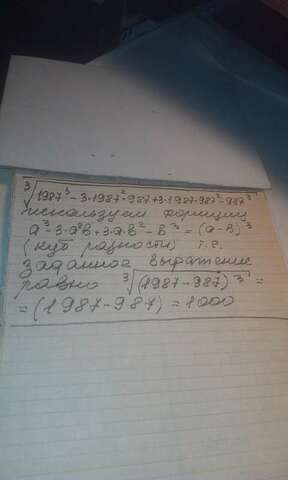 ³√(1987³ - 3·1987²·987 + 3·1987·987² - 987³)
используем формулу
a³ - 3·a²b + 3·a·b² - b³ = (a - b)³
(куб разности) т.е.
Заданное выражение
равно ³√((1987 - 987)³) =
= (1987 - 987) = 1000